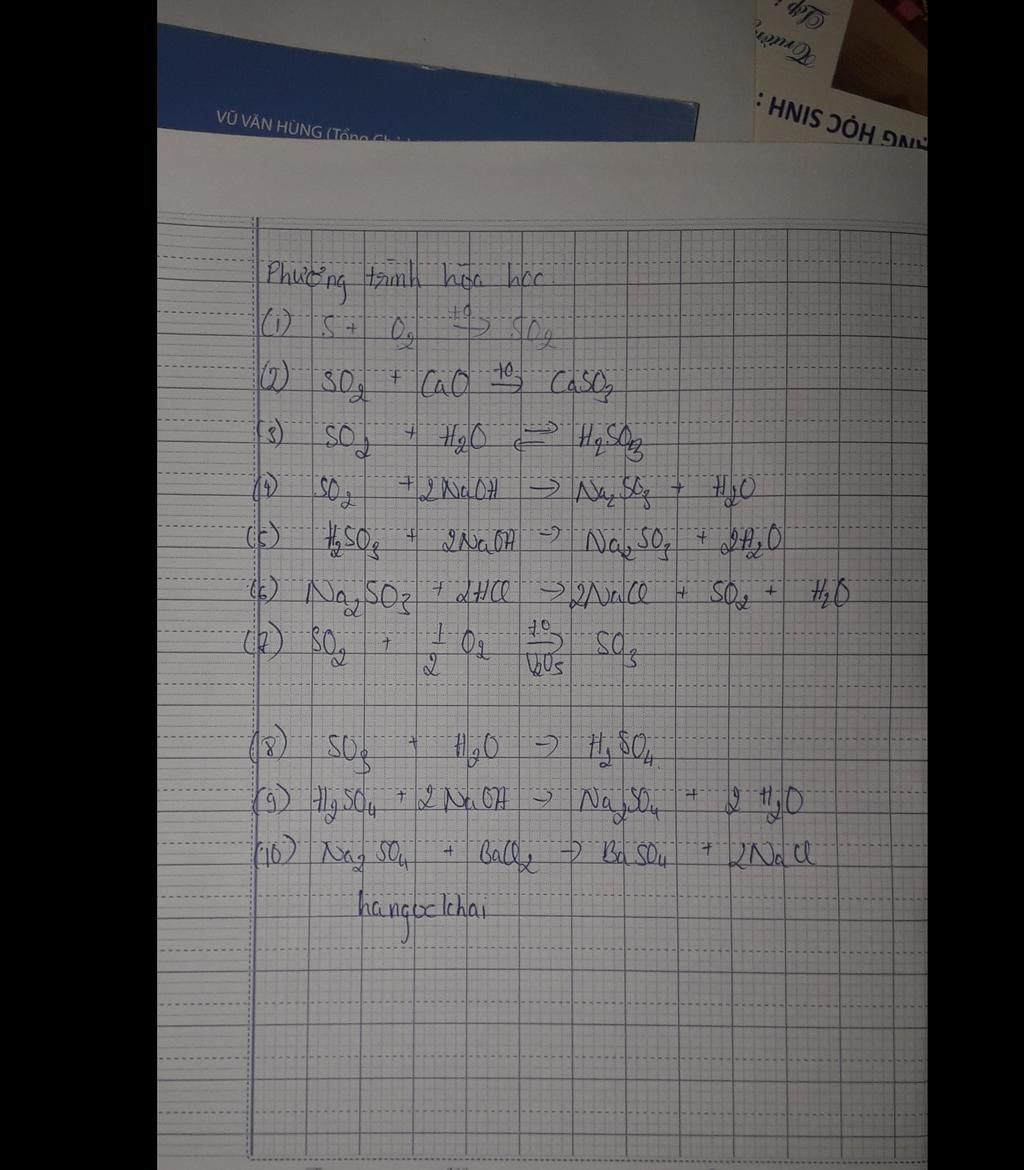 Lớp :
Trường
ANG HỌC SINH :
VŨ VĂN HÙNG (Tổng Chủ
Phương trình hóa học.
(1) S + O₂ →(t⁰) SO₂
(2) SO₂ + CaO →(t⁰) CaSO₃
(3) SO₂ + H₂O ⇌ H₂SO₃
(4) SO₂ + 2NaOH → Na₂SO₃ + H₂O
(5) H₂SO₃ + 2NaOH → Na₂SO₃ + 2H₂O
(6) Na₂SO₃ + 2HCl → 2NaCl + SO₂ + H₂O
(7) SO₂ + 1/2 O₂ →(t⁰, V₂O₅) SO₃
(8) SO₃ + H₂O → H₂SO₄.
(9) H₂SO₄ + 2NaOH → Na₂SO₄ + 2H₂O
(10) Na₂SO₄ + BaCl₂ → BaSO₄ + 2NaCl
hangockhai